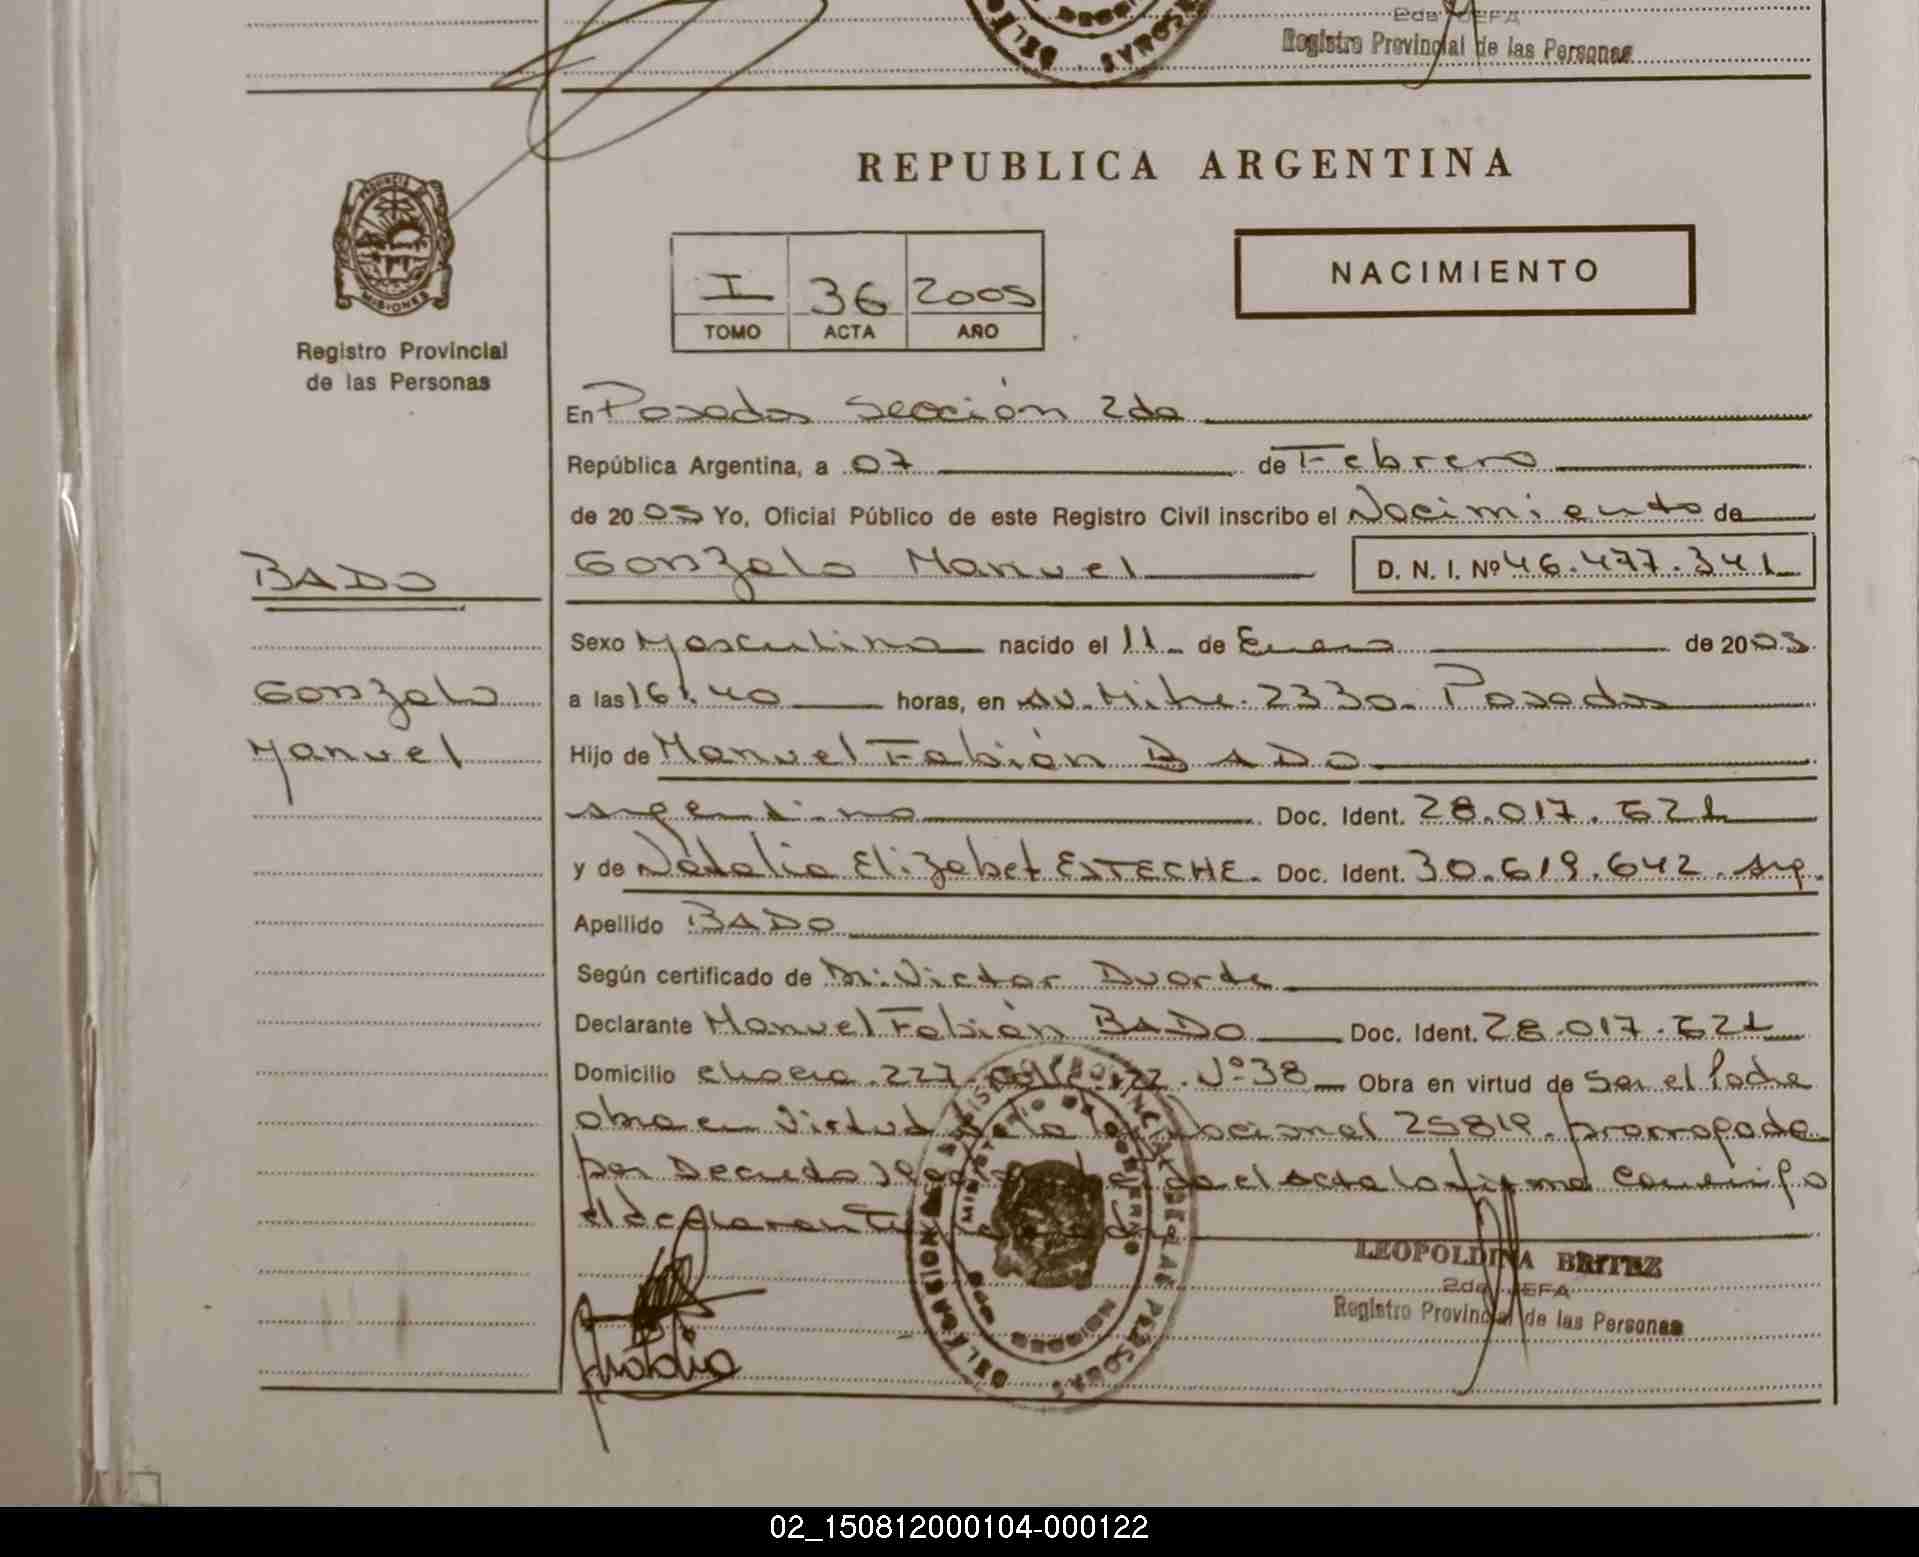 2da JEFA
Registro Provincial de las Personas
REPUBLICA ARGENTINA
PROVINCIA DE
MISIONES
Registro Provincial
de las Personas
I 36 2005
TOMO ACTA AÑO
NACIMIENTO
En Posadas Sección 2da
República Argentina, a 07 de Febrero
de 2005 Yo, Oficial Público de este Registro Civil inscribo el Nacimiento de
BADO
Gonzalo Manuel
D. N. I. Nº 46.477.341
Sexo Masculino nacido el 11 de Enero de 2005
Gonzalo
a las 16:40 horas, en Av. Mitre. 2330. Posadas
Manuel
Hijo de Manuel Fabián BADO
argentino Doc. Ident. 28.017.621
y de Natalia Elizabet ESTECHE. Doc. Ident. 30.619.642. arg.
Apellido BADO
Según certificado de Dr. Victor Duarte
Declarante Manuel Fabián BADO Doc. Ident. 28.017.621
Domicilio chacra 227 Nº 38 Obra en virtud de Ser el Padre
obra en virtud de la ley nacional 25819. prorrogada
por Decreto el acta la firma conmigo
el declarante
LEOPOLDINA BRITEZ
2da JEFA
Registro Provincial de las Personas
Natalia
02_150812000104-000122